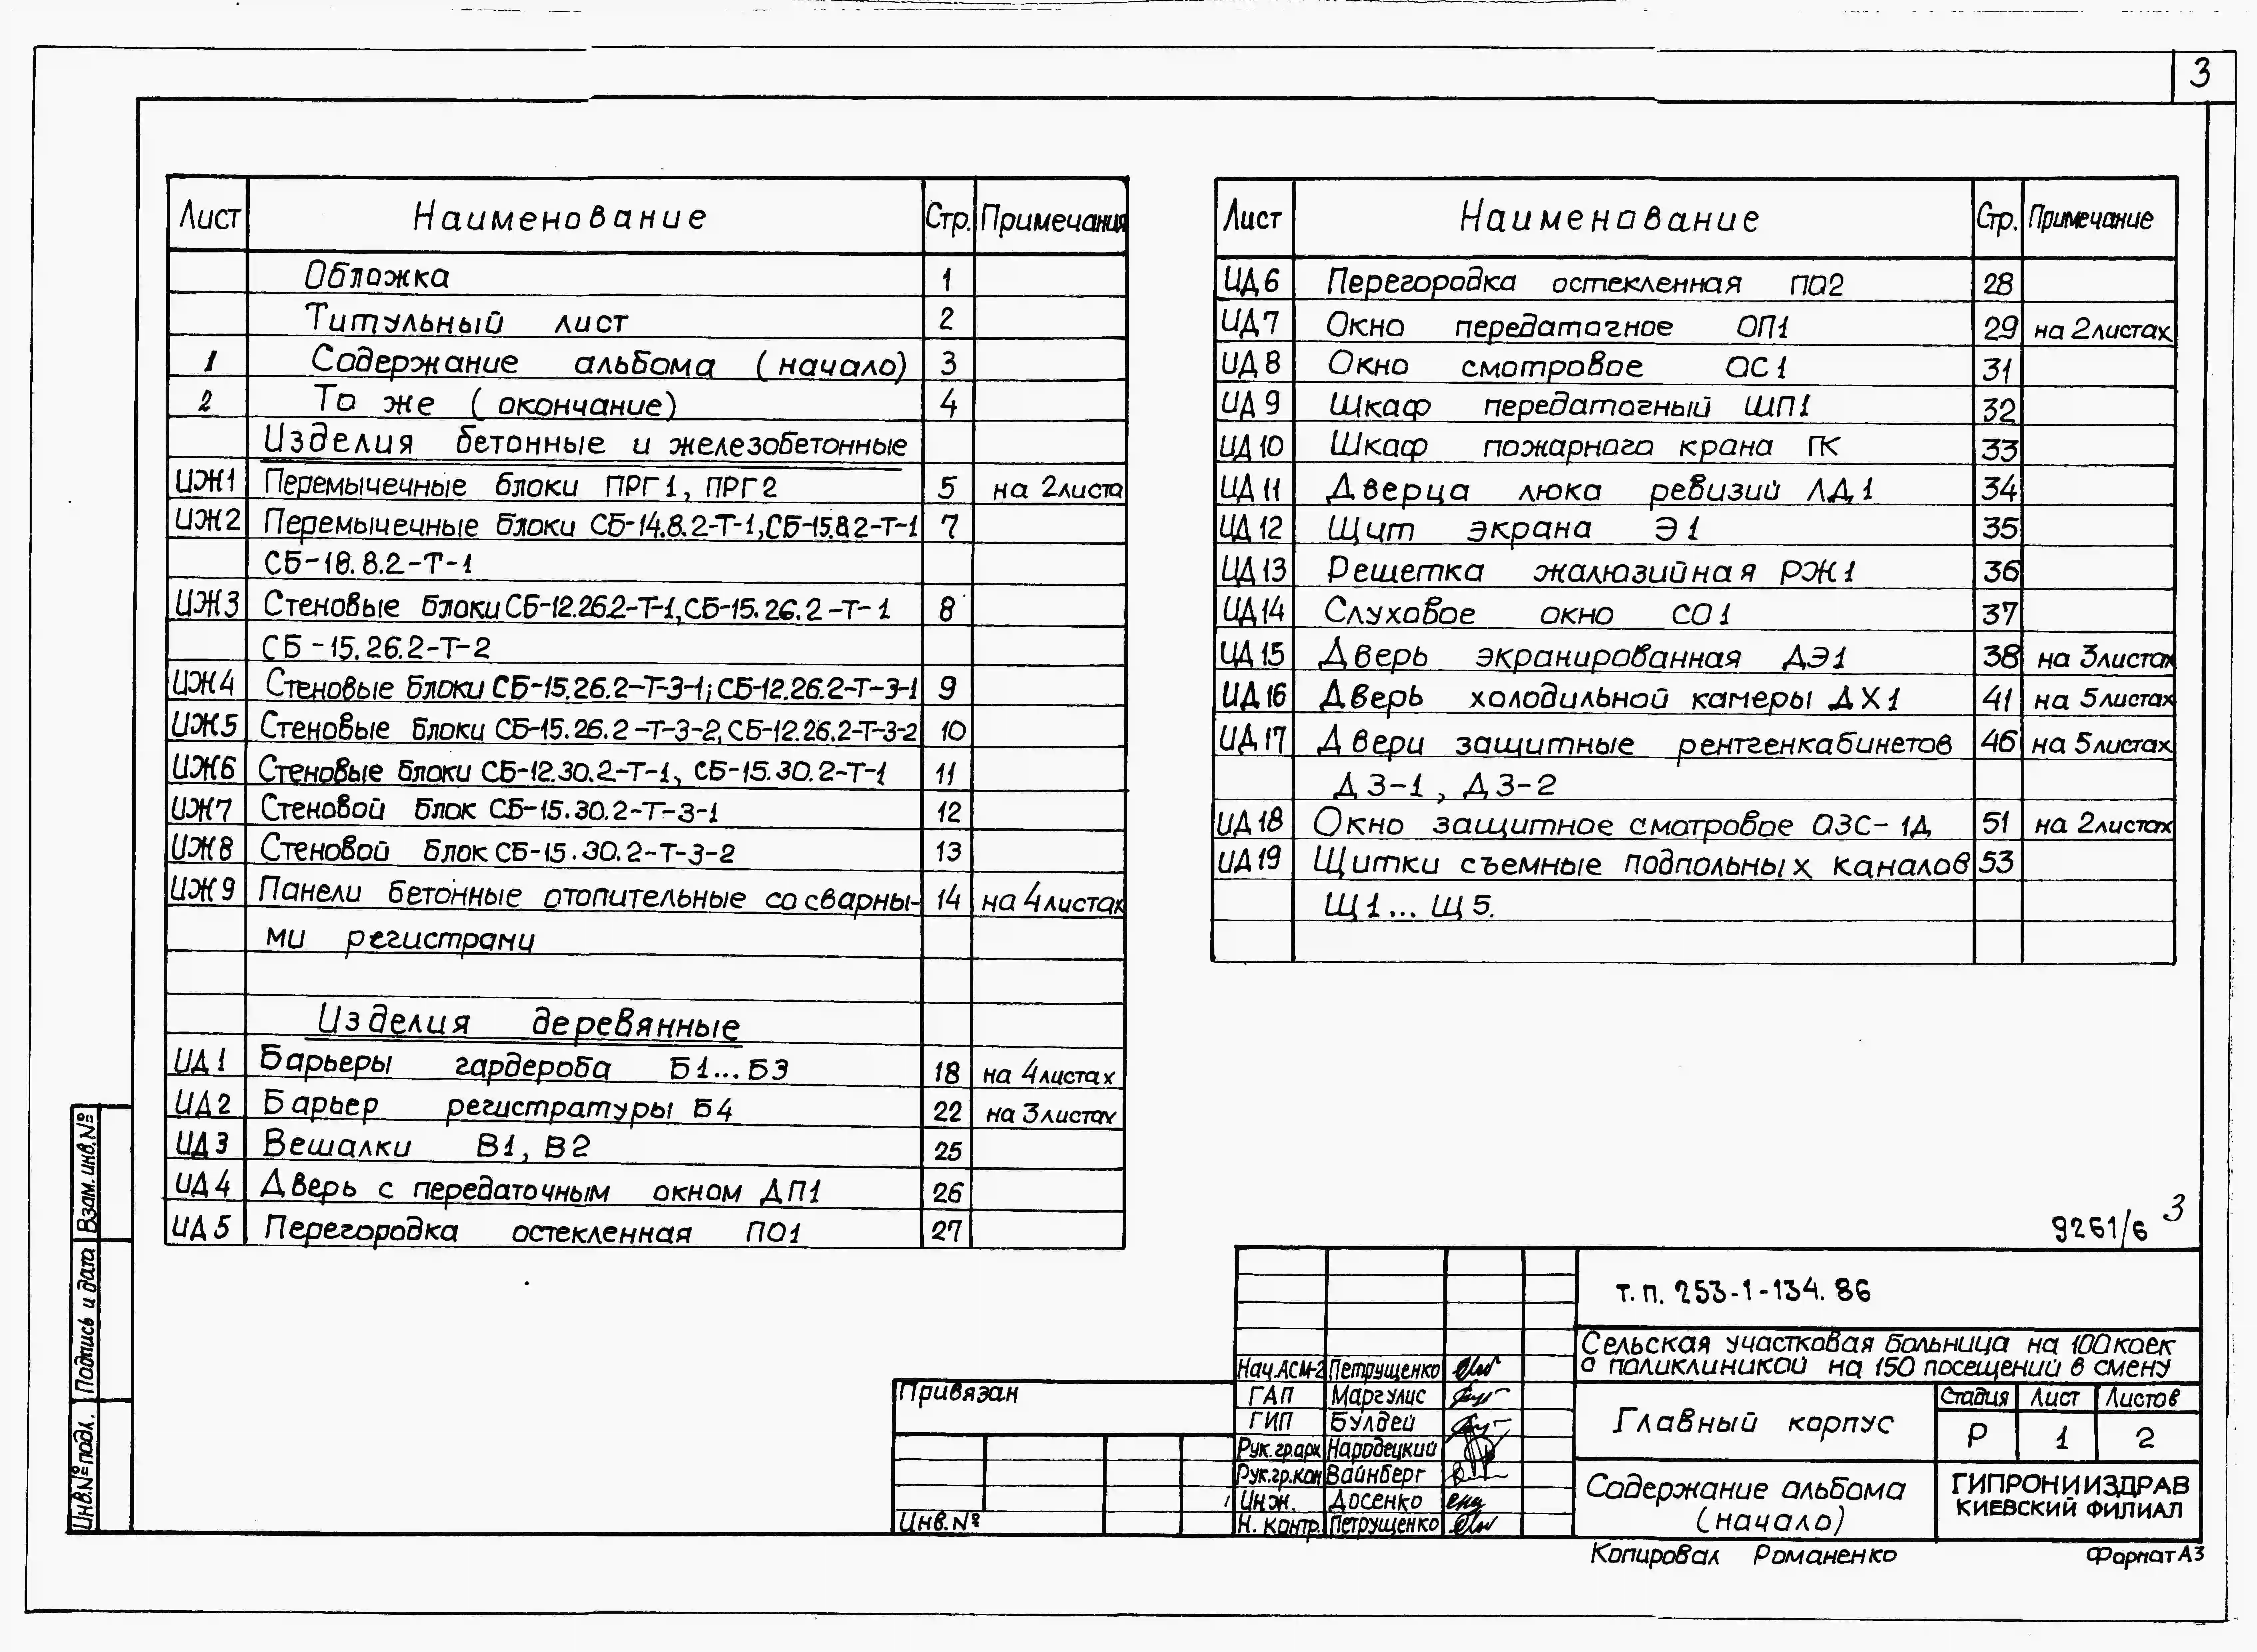 3
Лист Наименование Стр. Примечания
Обложка 1
Титульный лист 2
1 Содержание альбома (начало) 3
2 То же (окончание) 4
Изделия бетонные и железобетонные
ИЖ1 Перемычечные блоки ПРГ1, ПРГ2 5 на 2листа
ИЖ2 Перемычечные блоки СБ-14.8.2-Т-1,СБ-15.8.2-Т-1 7
СБ-18.8.2-Т-1
ИЖ3 Стеновые блоки СБ-12.26.2-Т-1,СБ-15.26.2-Т-1 8
СБ-15.26.2-Т-2
ИЖ4 Стеновые блоки СБ-15.26.2-Т-3-1; СБ-12.26.2-Т-3-1 9
ИЖ5 Стеновые блоки СБ-15.26.2-Т-3-2, СБ-12.26.2-Т-3-2 10
ИЖ6 Стеновые блоки СБ-12.30.2-Т-1, СБ-15.30.2-Т-1 11
ИЖ7 Стеновой блок СБ-15.30.2-Т-3-1 12
ИЖ8 Стеновой блок СБ-15.30.2-Т-3-2 13
ИЖ9 Панели бетонные отопительные со сварны- 14 на 4листах
ми регистрами
Изделия деревянные
ИД1 Барьеры гардероба Б1...Б3 18 на 4листах
ИД2 Барьер регистратуры Б4 22 на 3листах
ИД3 Вешалки В1, В2 25
ИД4 Дверь с передаточным окном ДП1 26
ИД5 Перегородка остекленная ПО1 27
Лист Наименование Стр. Примечание
ИД6 Перегородка остекленная ПО2 28
ИД7 Окно передаточное ОП1 29 на 2листах
ИД8 Окно смотровое ОС1 31
ИД9 Шкаф передаточный ШП1 32
ИД10 Шкаф пожарного крана ПК 33
ИД11 Дверца люка ревизий ЛД1 34
ИД12 Щит экрана Э1 35
ИД13 Решетка жалюзийная РЖ1 36
ИД14 Слуховое окно СО1 37
ИД15 Дверь экранированная ДЭ1 38 на 3листах
ИД16 Дверь холодильной камеры ДХ1 41 на 5листах
ИД17 Двери защитные рентгенкабинетов 46 на 5листах
ДЗ-1, ДЗ-2
ИД18 Окно защитное смотровое ОЗС-1Д 51 на 2листах
ИД19 Щитки съемные подпольных каналов 53
Щ1... Щ5.
9261/6 3
Т.П. 253-1-134.86
Сельская участковая больница на 100коек
с поликлиникой на 150 посещений в смену
Нач.АСМ-2 Петрущенко
ГАП Маргулис
ГИП Булдей
Рук.гр.арх Народецкий
Рук.гр.кон Вайнберг
Инж. Досенко
Н. контр. Петрущенко
Главный корпус
Стадия Лист Листов
Р 1 2
Содержание альбома
(начало)
ГИПРОНИИЗДРАВ
КИЕВСКИЙ ФИЛИАЛ
Привязан
Инв.№
Копировал Романенко Формат А3
Взам.инв.№
Подпись и дата
Инв.№ подл.